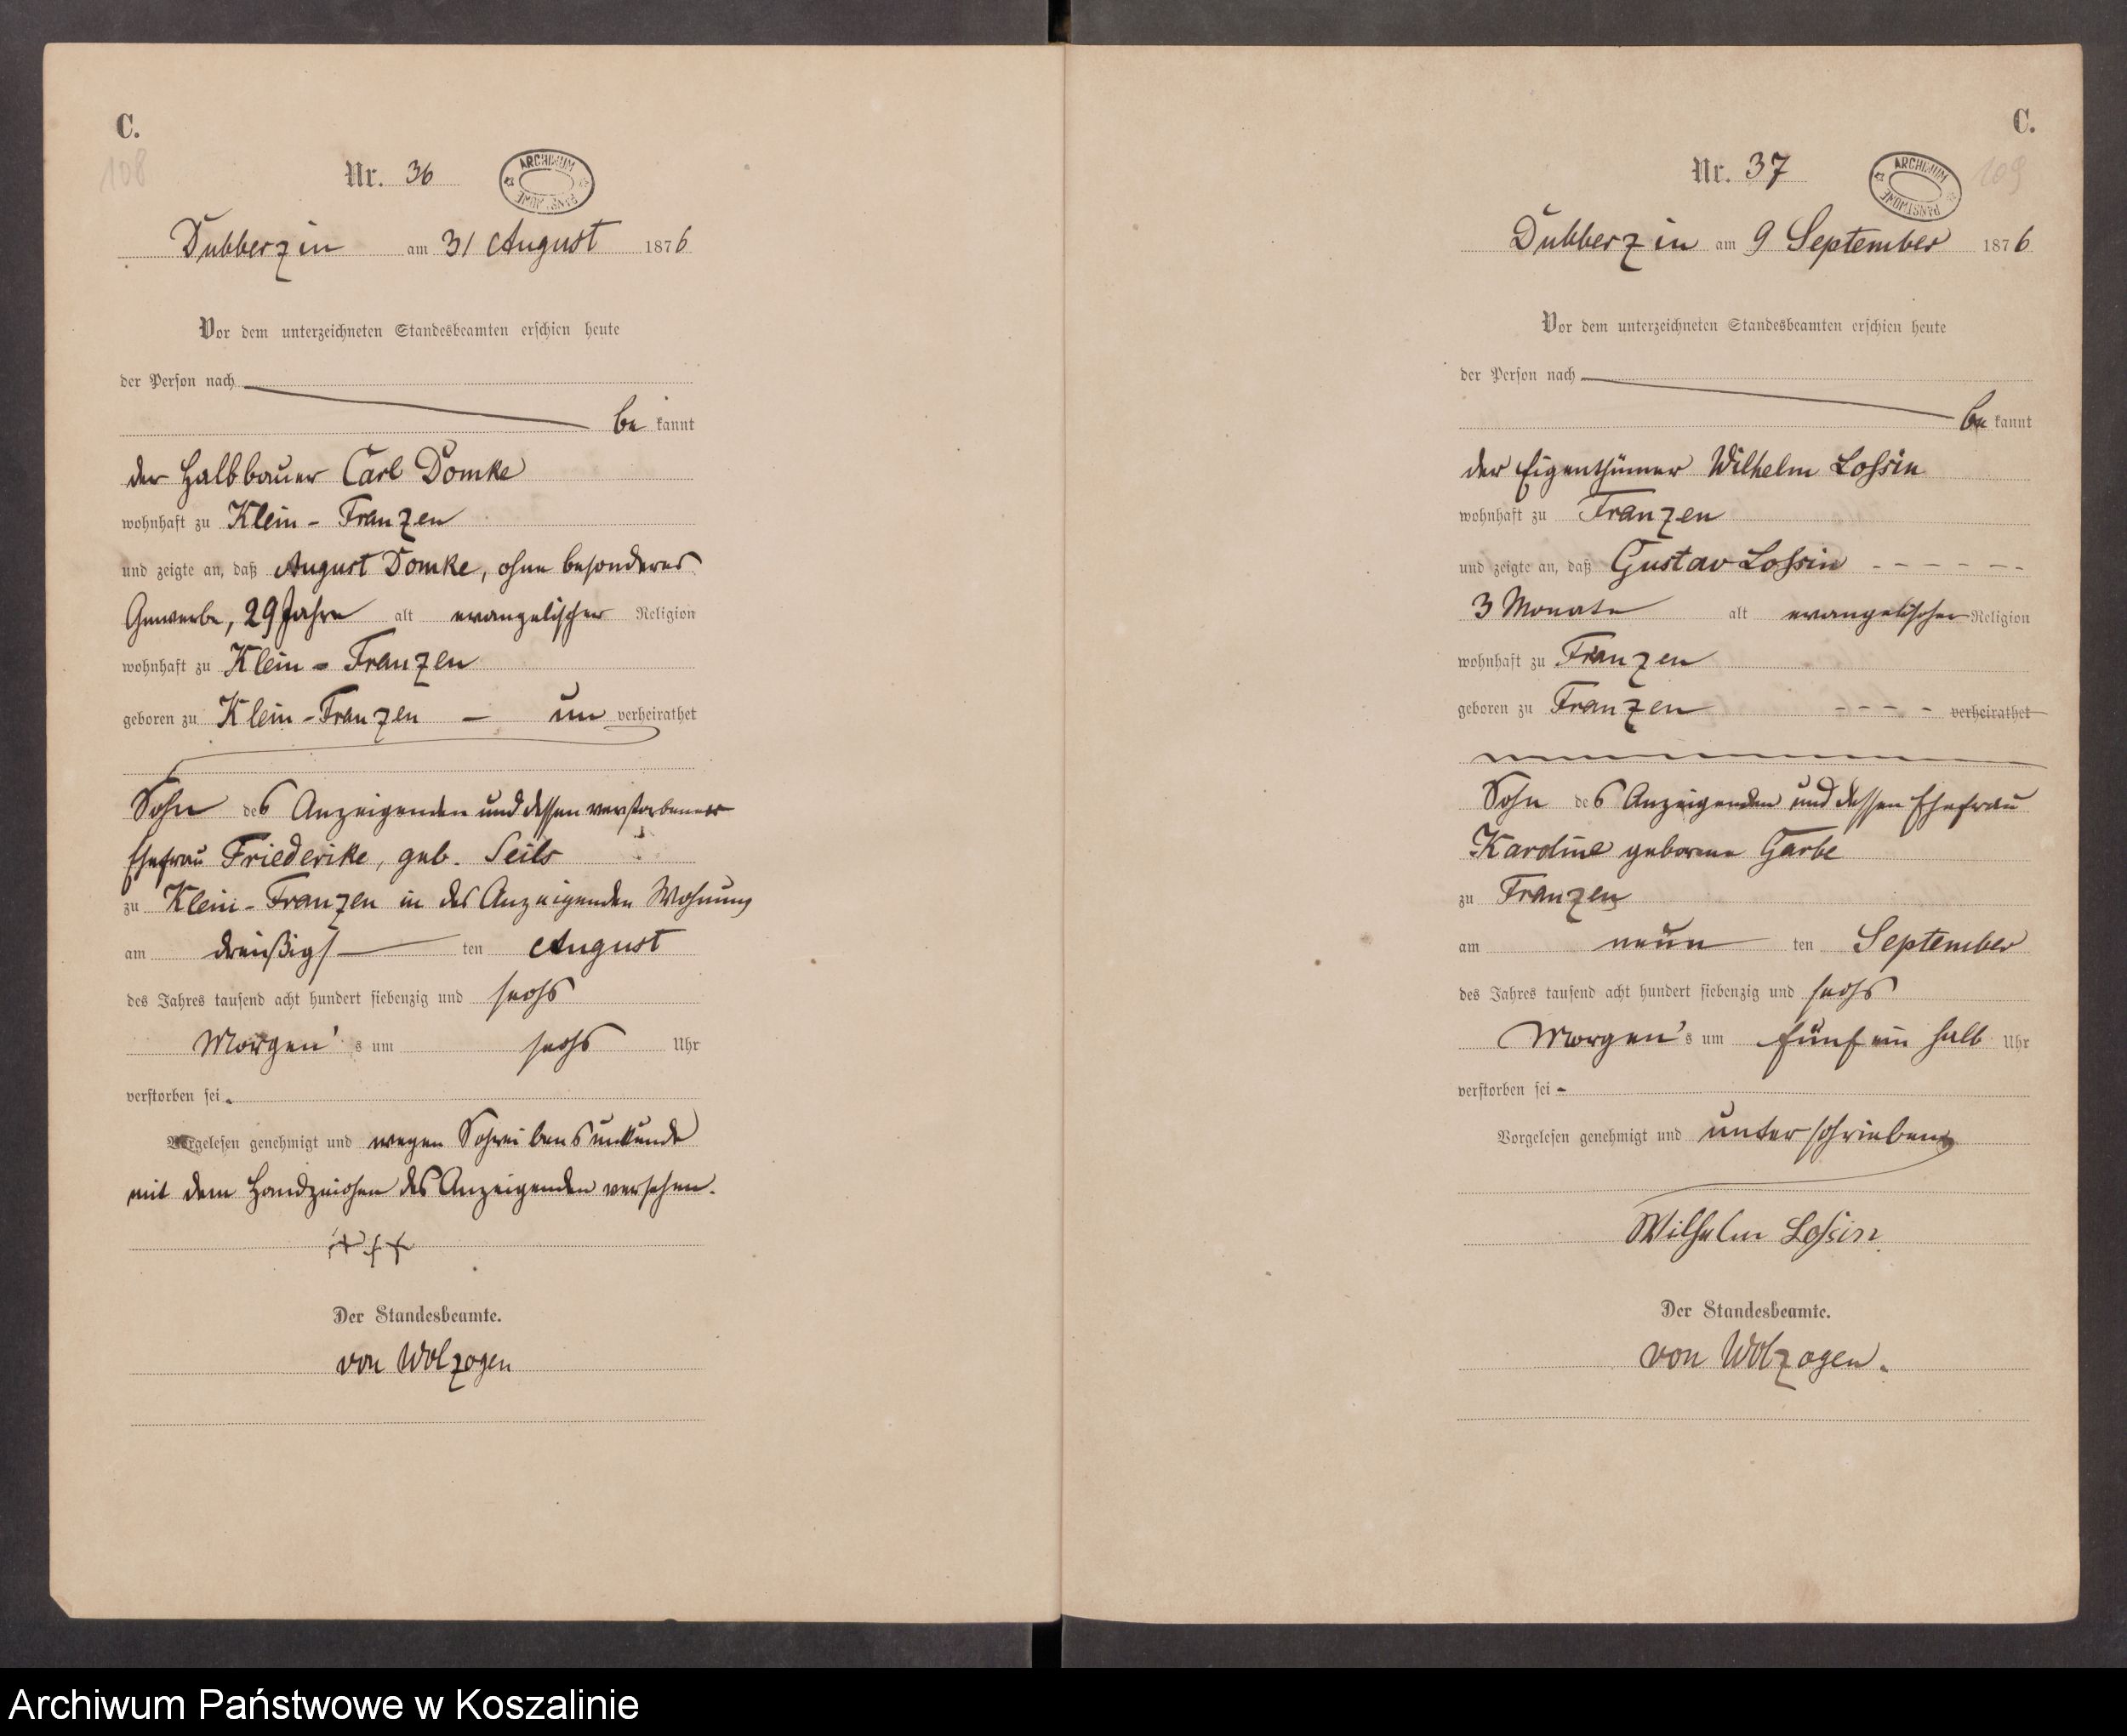 C.
108
Nr. 36
ARCHIWUM PAŃSTWOWE
Dubberzin am 31 August 1876
Vor dem unterzeichneten Standesbeamten erschien heute
der Person nach
be kannt
der Halbbauer Carl Domke
wohnhaft zu Klein-Franzen
und zeigte an, daß August Domke, ohne besonderes
Gewerbe, 29 Jahre alt evangelischer Religion
wohnhaft zu Klein-Franzen
geboren zu Klein-Franzen – un verheirathet
Sohn des Anzeigenden und dessen verstorbener
Ehefrau Friederike, geb. Seils
zu Klein-Franzen in des Anzeigenden Wohnung
am dreißigs ten August
des Jahres tausend acht hundert siebenzig und sechs
Morgen's um sechs Uhr
verstorben sei.
Vorgelesen genehmigt und wegen Schreibensunkunde
mit dem Handzeichen des Anzeigenden versehen.
+++
Der Standesbeamte.
von Wolzogen
C.
109
Nr. 37
ARCHIWUM PAŃSTWOWE
Dubberzin am 9 September 1876
Vor dem unterzeichneten Standesbeamten erschien heute
der Person nach
be kannt
der Eigenthümer Wilhelm Loßin
wohnhaft zu Franzen
und zeigte an, daß Gustav Loßin - - - - - -
3 Monate alt evangelischer Religion
wohnhaft zu Franzen
geboren zu Franzen - - - - verheirathet
Sohn des Anzeigenden und dessen Ehefrau
Karoline geborene Garbe
zu Franzen
am neun ten September
des Jahres tausend acht hundert siebenzig und sechs
Morgen's um fünf ein halb Uhr
verstorben sei –
Vorgelesen genehmigt und unterschrieben
Wilhelm Loßin
Der Standesbeamte.
von Wolzogen.
Archiwum Państwowe w Koszalinie